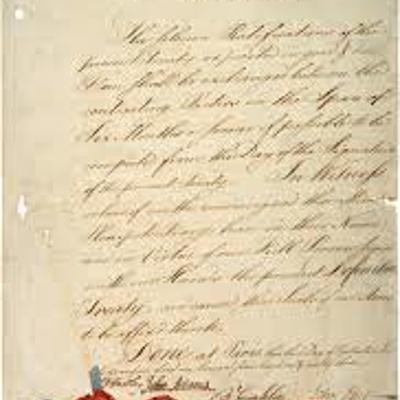 The solemn Ratifications of the
present Treaty expedited in good & due
Form shall be exchanged between the
contracting Parties in the Space of
Six Months or sooner if possible to be
computed from the Day of the Signature
of the present Treaty. In Witness
whereof we the undersigned their Ministers
Plenipotentiary have in their Name
and in Virtue of our Full Powers signed
with our Hands the present Definitive
Treaty, and caused the Seals of our Arms
to be affixed thereto.
Done at Paris, this third Day of September
John Adams